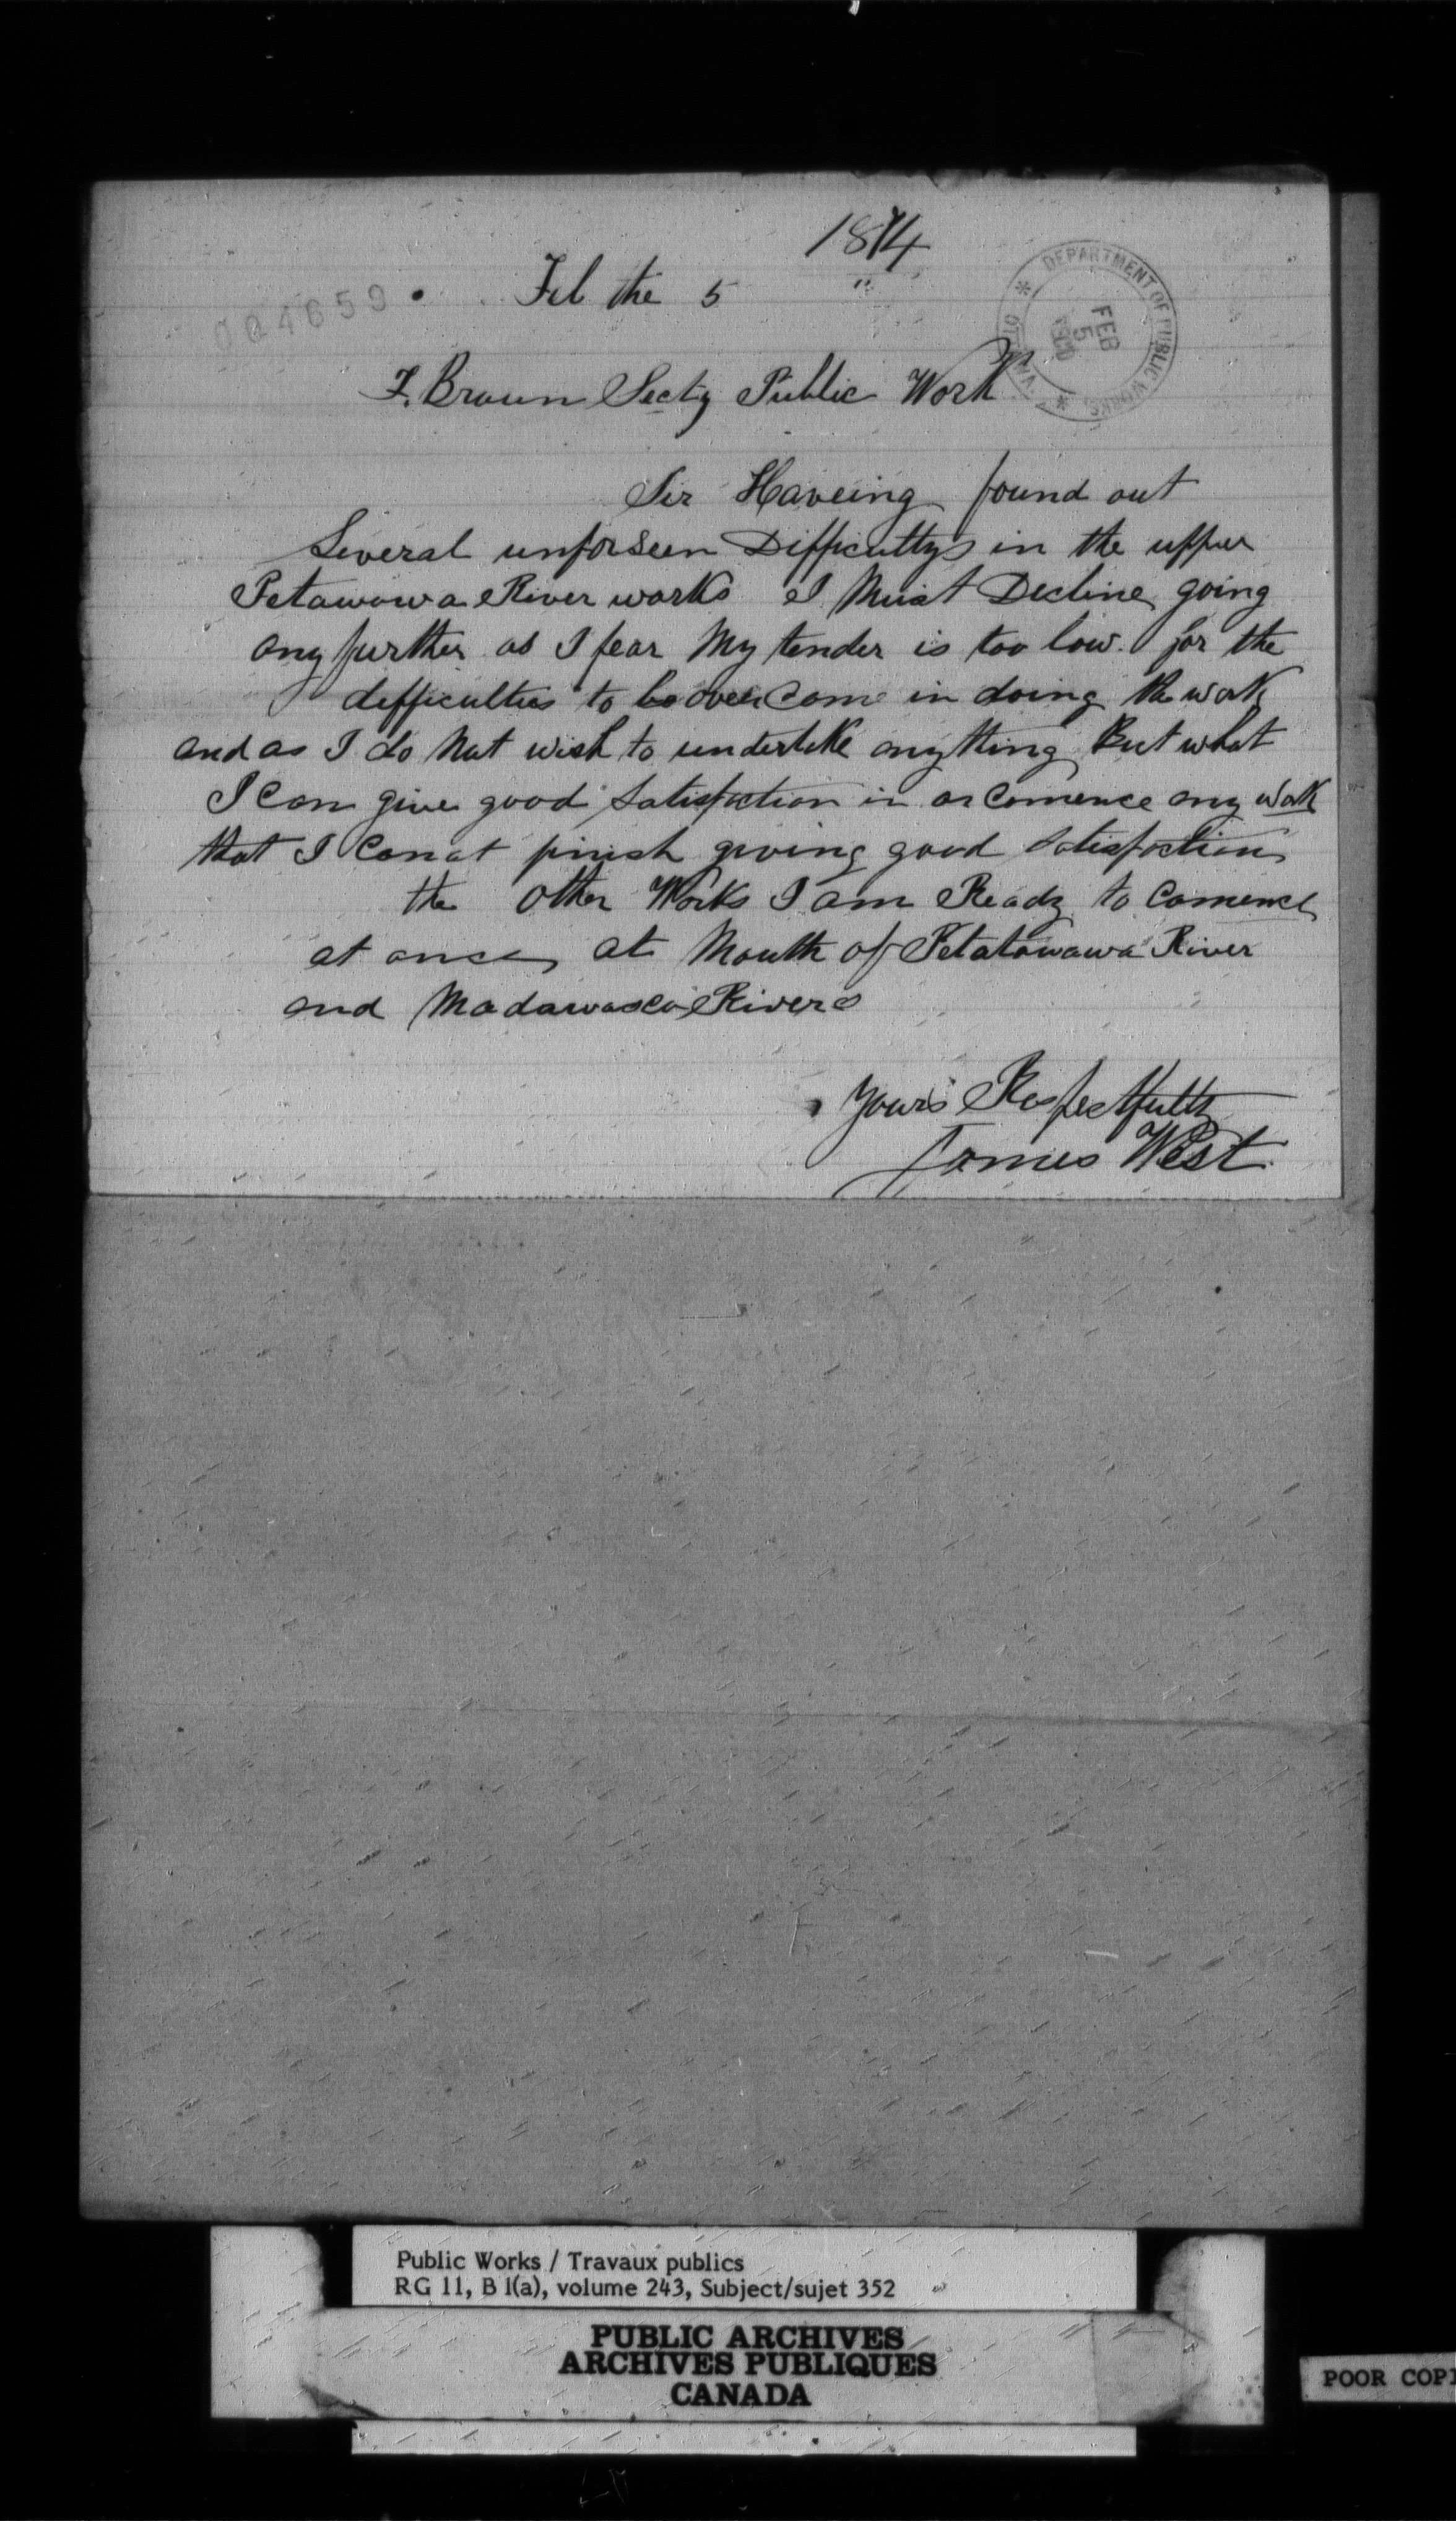 1874
Feb the 5 "
004659
DEPARTMENT OF PUBLIC WORKS
FEB
5
F. Braun Secty Public Work
Sir Haveing found out
Several unforseen Difficultys in the upper
Petawawa River works I Must Decline going
any further as I fear My tender is too low. for the
difficulties to be over Come in doing the work
and as I do Not wish to undertake anything But what
I Can give good Satisfaction in or Comence any work
that I Canot finish giving good Satisfaction
the other Works I am Ready to Comence
at once at Mouth of Petatawawa River
and Madawasca Rivers
Yours Respectfully
James West
Public Works / Travaux publics
RG 11, B 1(a), volume 243, Subject/sujet 352
PUBLIC ARCHIVES
ARCHIVES PUBLIQUES
CANADA
POOR COPI